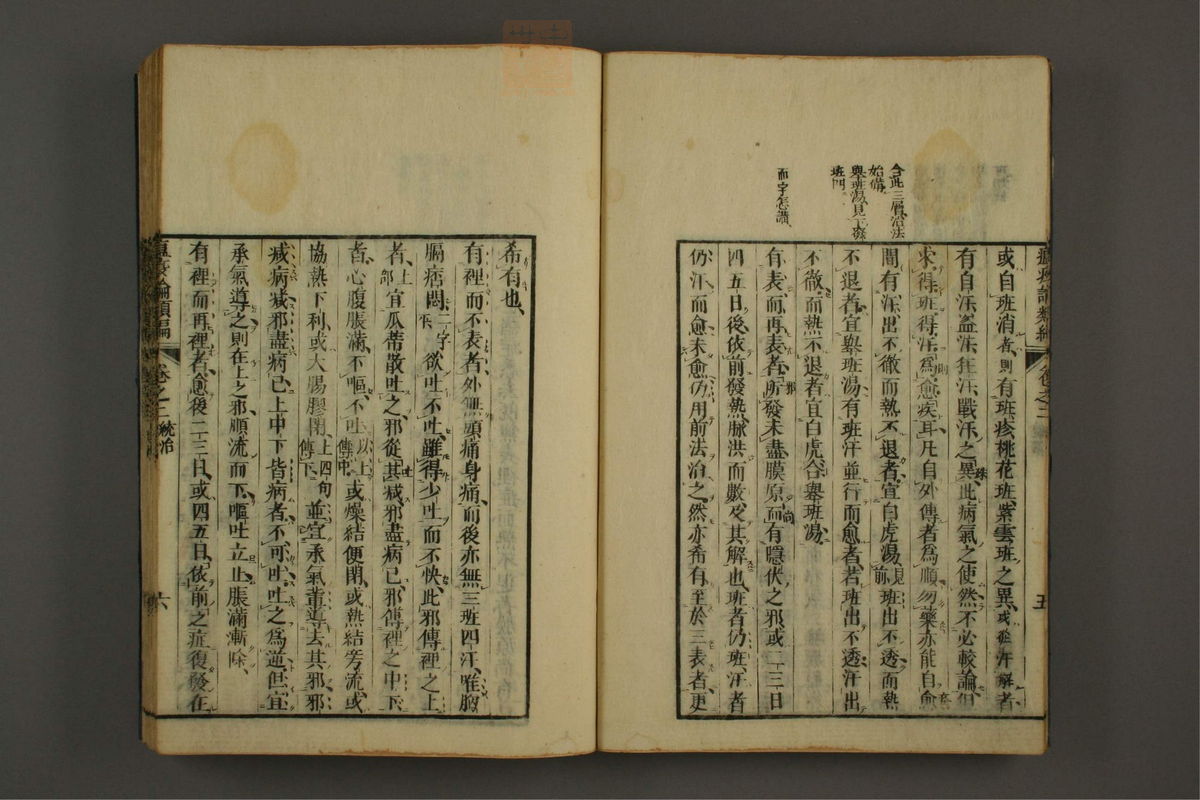 合此三層治法
始備
舉斑湯見下發
斑門
而字怎讀
或自班消者則有班疹桃花班紫雲班之異或從汗解者
有自汗盜汗狂汗戰汗之異此病氣之使然不必較論但
求得班得汗為愈疾耳凡自外傳者為順勿藥亦能自愈
間有汗出不徹而熱不退者宜白虎湯見前班出不透而熱
不退者宜舉班湯有班汗並行而愈者若班出不透汗出
不徹而熱不退者宜白虎合舉班湯
有表而再表者所發未盡膜原尚有隱伏之邪或二三日
四五日後依前發熱脈洪而數及其解也班者仍班汗者
仍汗而愈未愈仍用前法治之然亦希有至於三表者更
五
希有也
有裡而不表者外無頭痛身痛而後亦無三班四汗唯胸
膈痞悶二字下欲吐不吐雖得少吐而不快此邪傳裡之上
者上部宜瓜蒂散吐之邪從其減邪盡病已邪傳裡之中下
者心腹脹滿不嘔不吐以上傳中或燥結便閉或熱結旁流或
協熱下利或大腸膠閉上四句傳下並宜承氣輩導去其邪邪
減病減邪盡病已上中下皆病者不可吐吐之為逆但宜
承氣導之則在上之邪順流而下嘔吐立止脹滿漸除
有裡而再裡者愈後二三日或四五日依前之症復發在
卷之二 統治
六